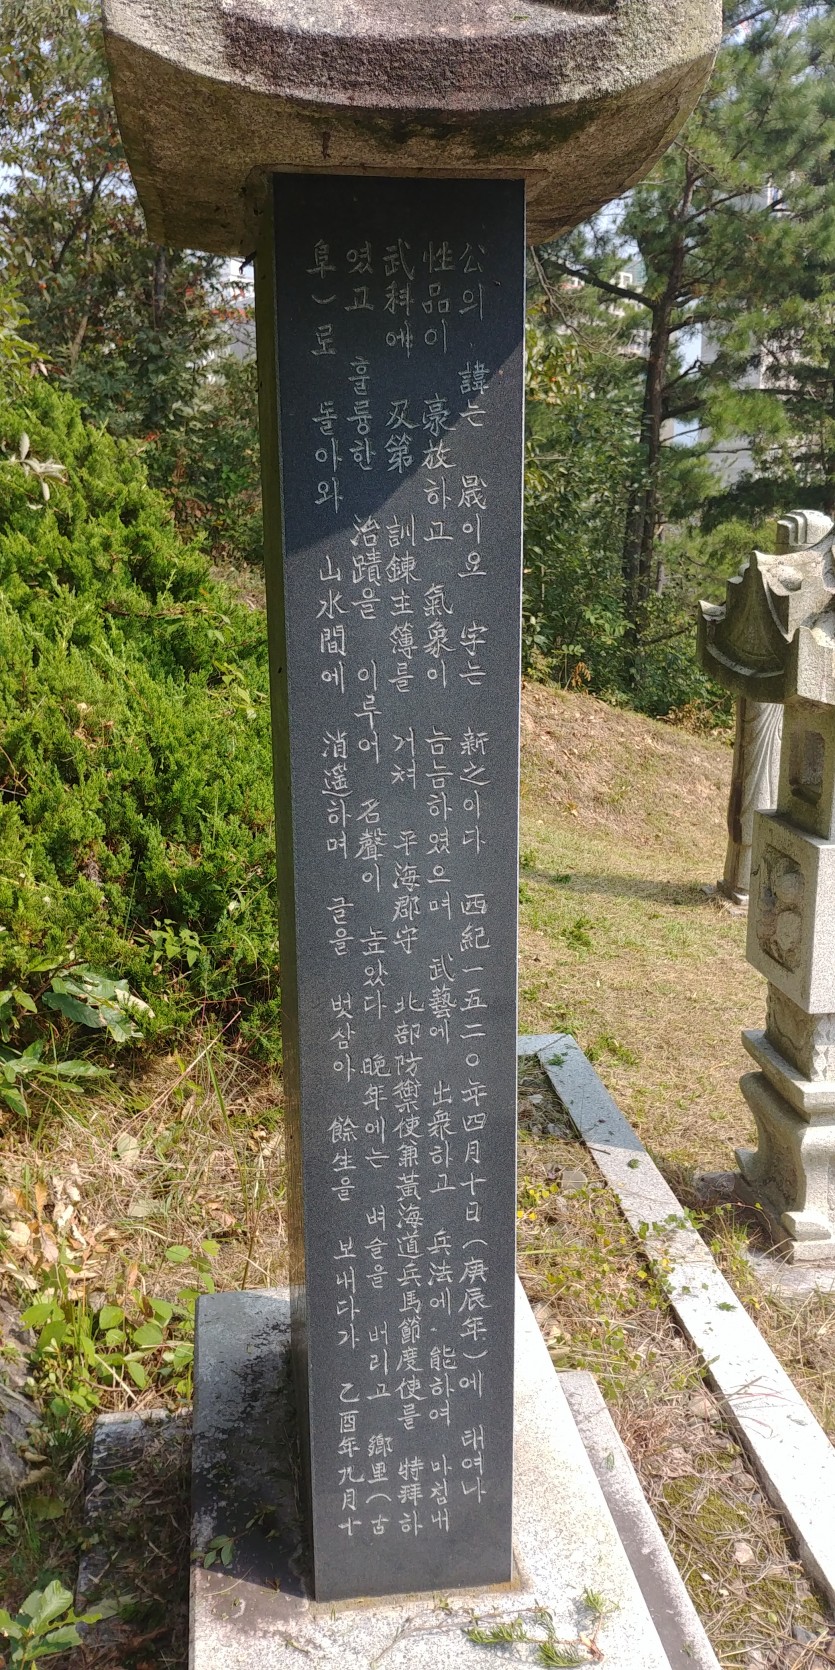 公의 諱는 晟이오 字는 新之이다 西紀一五二○年四月十日(庚辰年)에 태여나
性品이 豪放하고 氣象이 늠늠하였으며 武藝에 出衆하고 兵法에 能하여 마침내
武科에 及第 訓鍊主簿를 거쳐 平海郡守 北部防禦使兼黃海道兵馬節度使를 特拜하
였고 훌륭한 治蹟을 이루어 名聲이 높았다 晩年에는 벼슬을 버리고 鄕里(古
阜)로 돌아와 山水間에 消遙하며 글을 벗삼아 餘生을 보내다가 乙酉年九月十